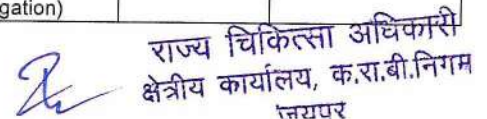 gation)
राज्य चिकित्सा अधिकारी
क्षेत्रीय कार्यालय, क.रा.बी.निगम
जयपुर